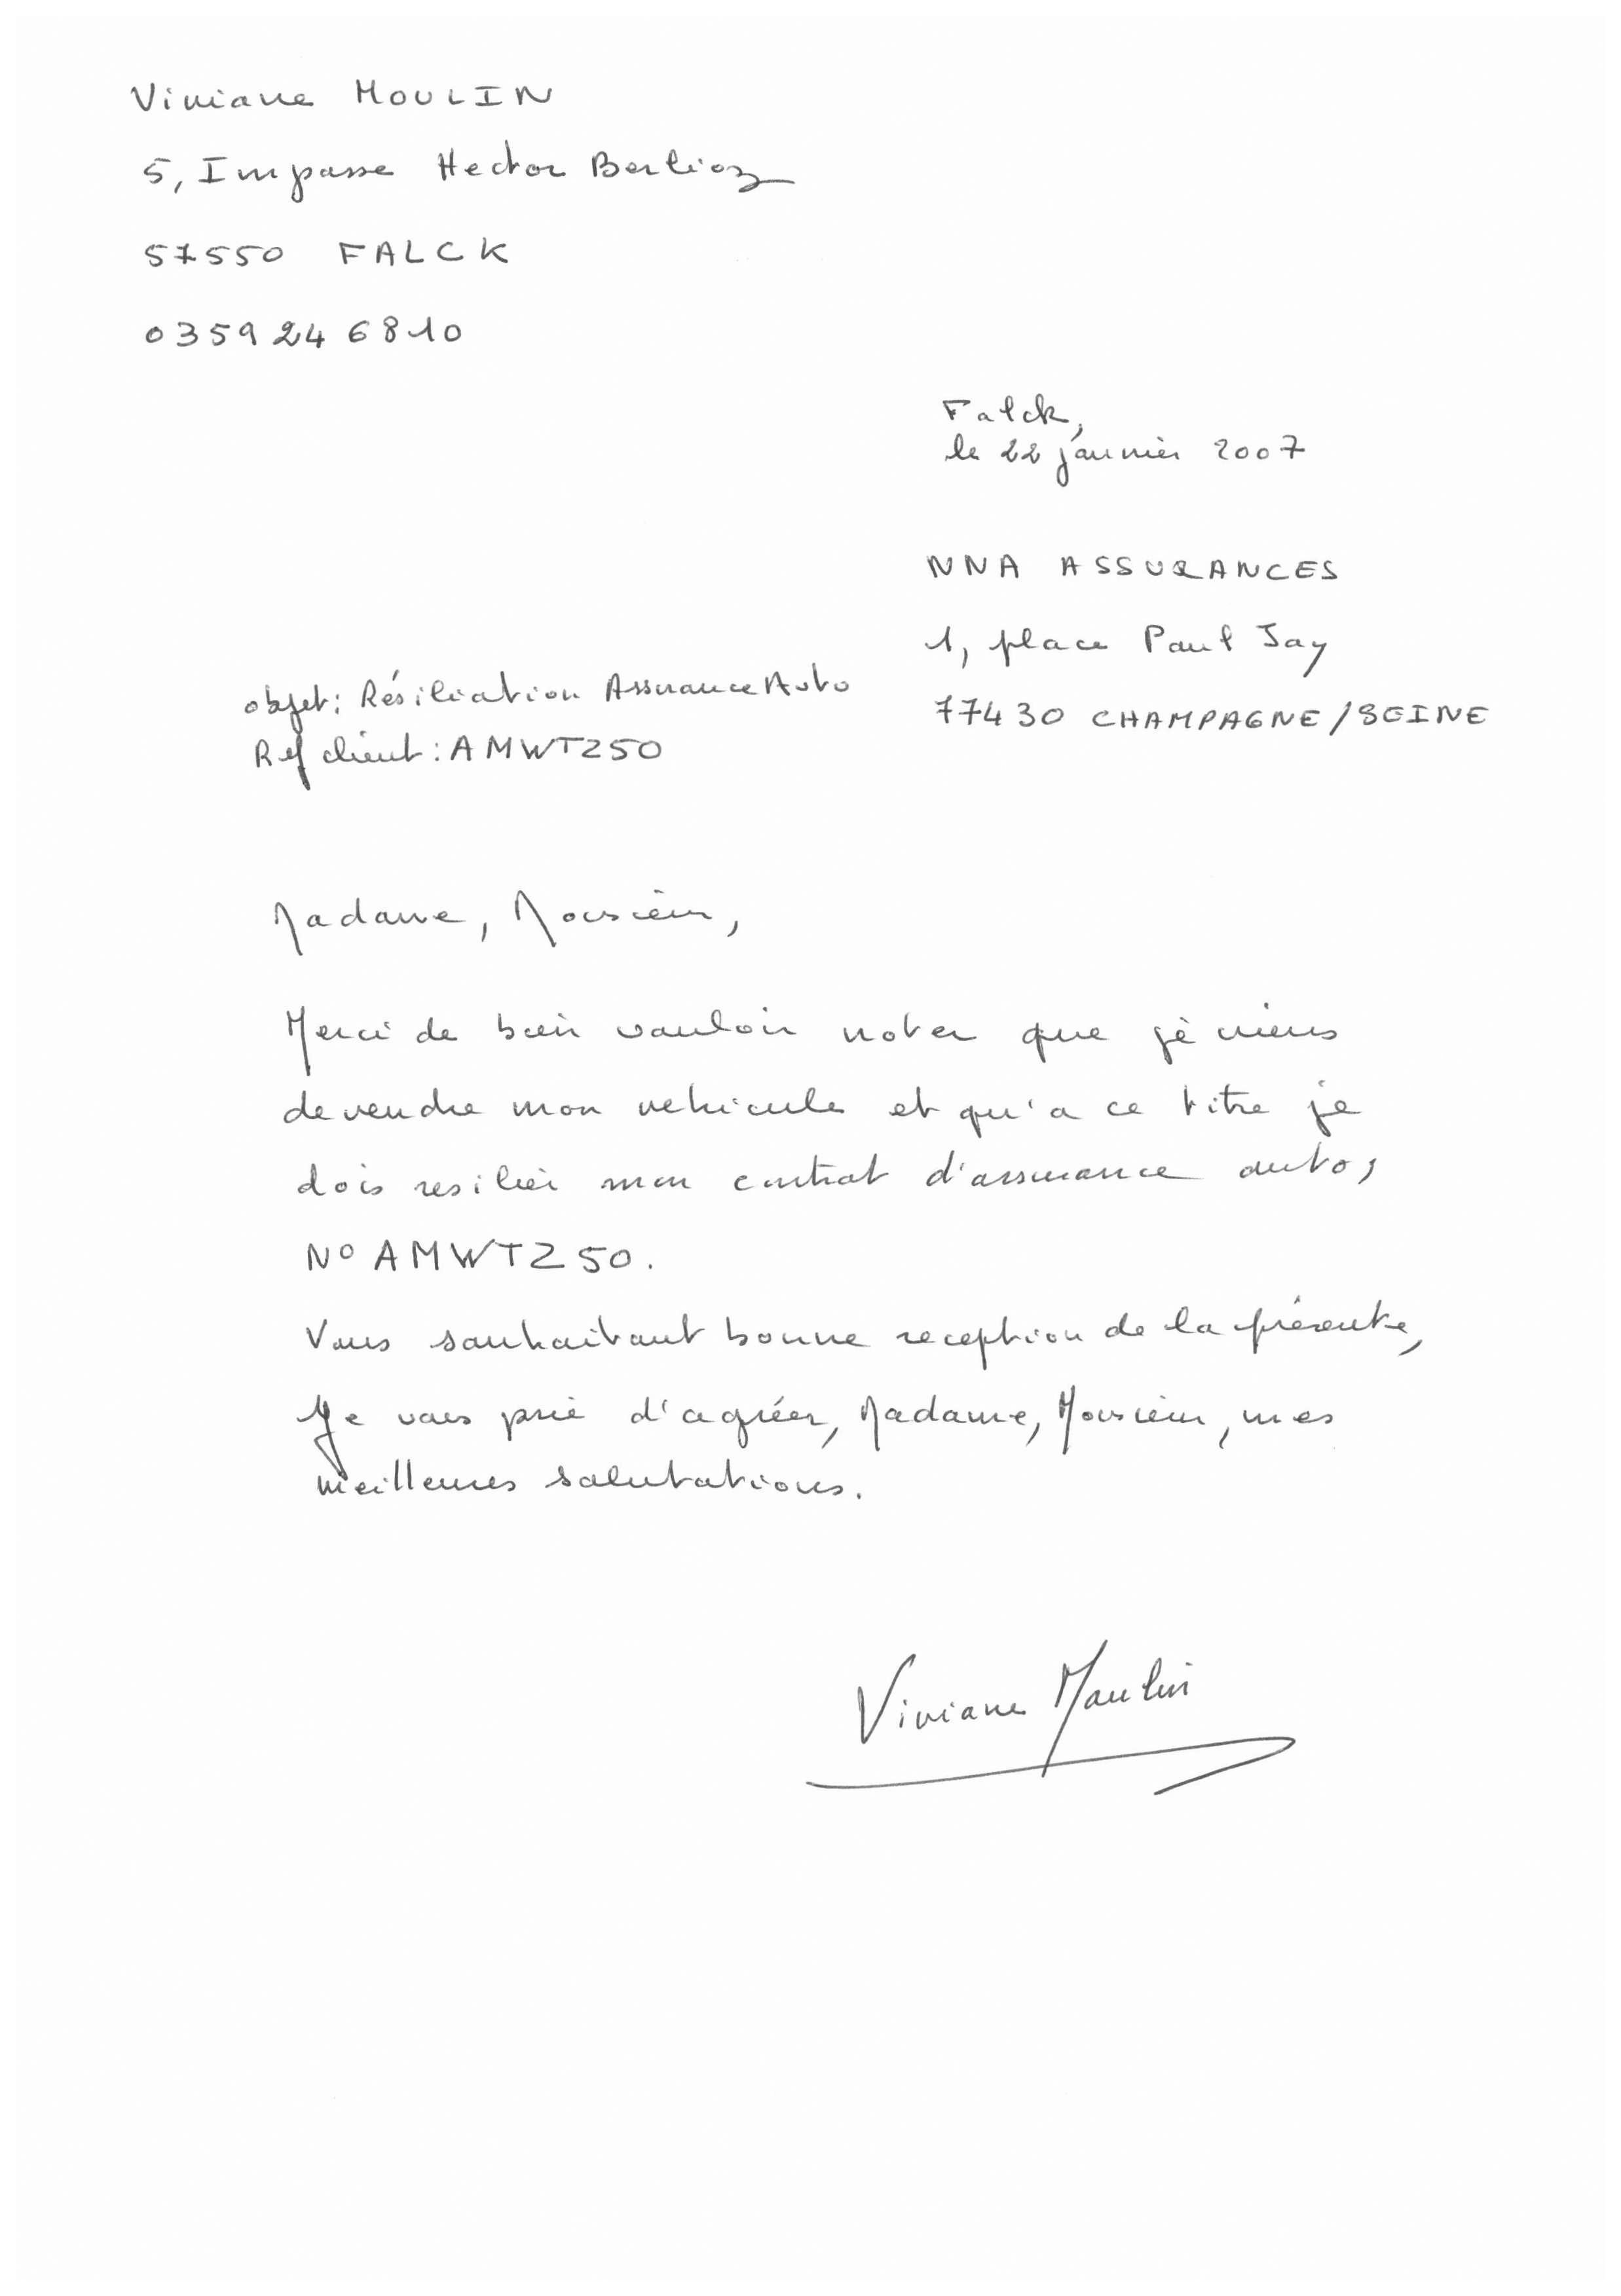 Viviane MOULIN
5, Impasse Hector Berlioz
57550 FALCK
03 59 24 68 10
Falck,
le 22 janvier 2007
NNA ASSURANCES
1, place Paul Jay
77430 CHAMPAGNE/SEINE
objet: Résiliation Assurance Auto
Ref client: AMWTZ50
Madame, Monsieur,
Merci de bien vouloir noter que je viens
de vendre mon vehicule et qu'a ce titre je
dois resilier mon contrat d'assurance auto,
N° AMWTZ50.
Vous souhaitant bonne reception de la présente,
Je vous prie d'agréer, Madame, Monsieur, mes
meilleures salutations.
Viviane Moulin